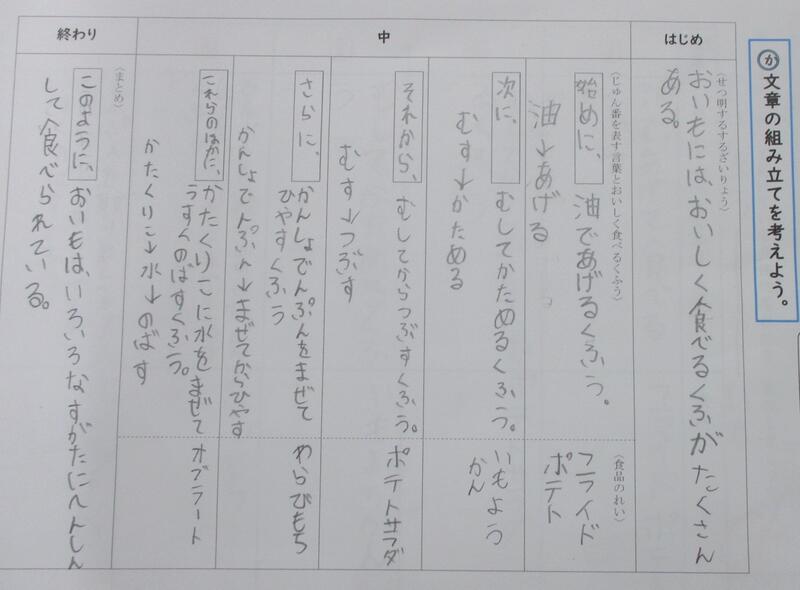 か 文章の組み立てを考えよう。
はじめ
〈せつ明するざいりょう〉
おいもには、おいしく食べるくふうがたくさん
ある。
中
〈じゅん番を表す言葉とおいしく食べるくふう〉
〈食品のれい〉
始めに、油であげるくふう。
油→あげる
フライド
ポテト
次に、むしてかためるくふう。
むす→かためる
いもよう
かん
それから、むしてからつぶすくふう。
むす→つぶす
ポテトサラダ
さらに、かんしょでんぷんをまぜて
ひやすくふう
かんしょでんぷん→まぜてからひやす
わらびもち
これらのほかに、かたくりこに水をまぜて
うすくのばすくふう。
かたくりこ→水→のばす
オブラート
終わり
〈まとめ〉
このように、おいもは、いろいろなすがたにへんしん
して食べられている。